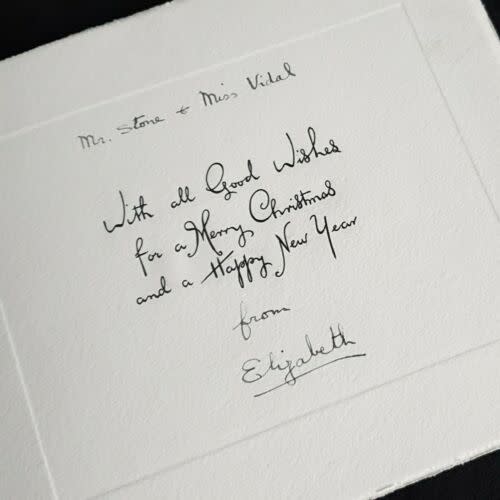 Mr. Stone + Miss Vidal
With all Good Wishes
for a Merry Christmas
and a Happy New Year
from
Elizabeth